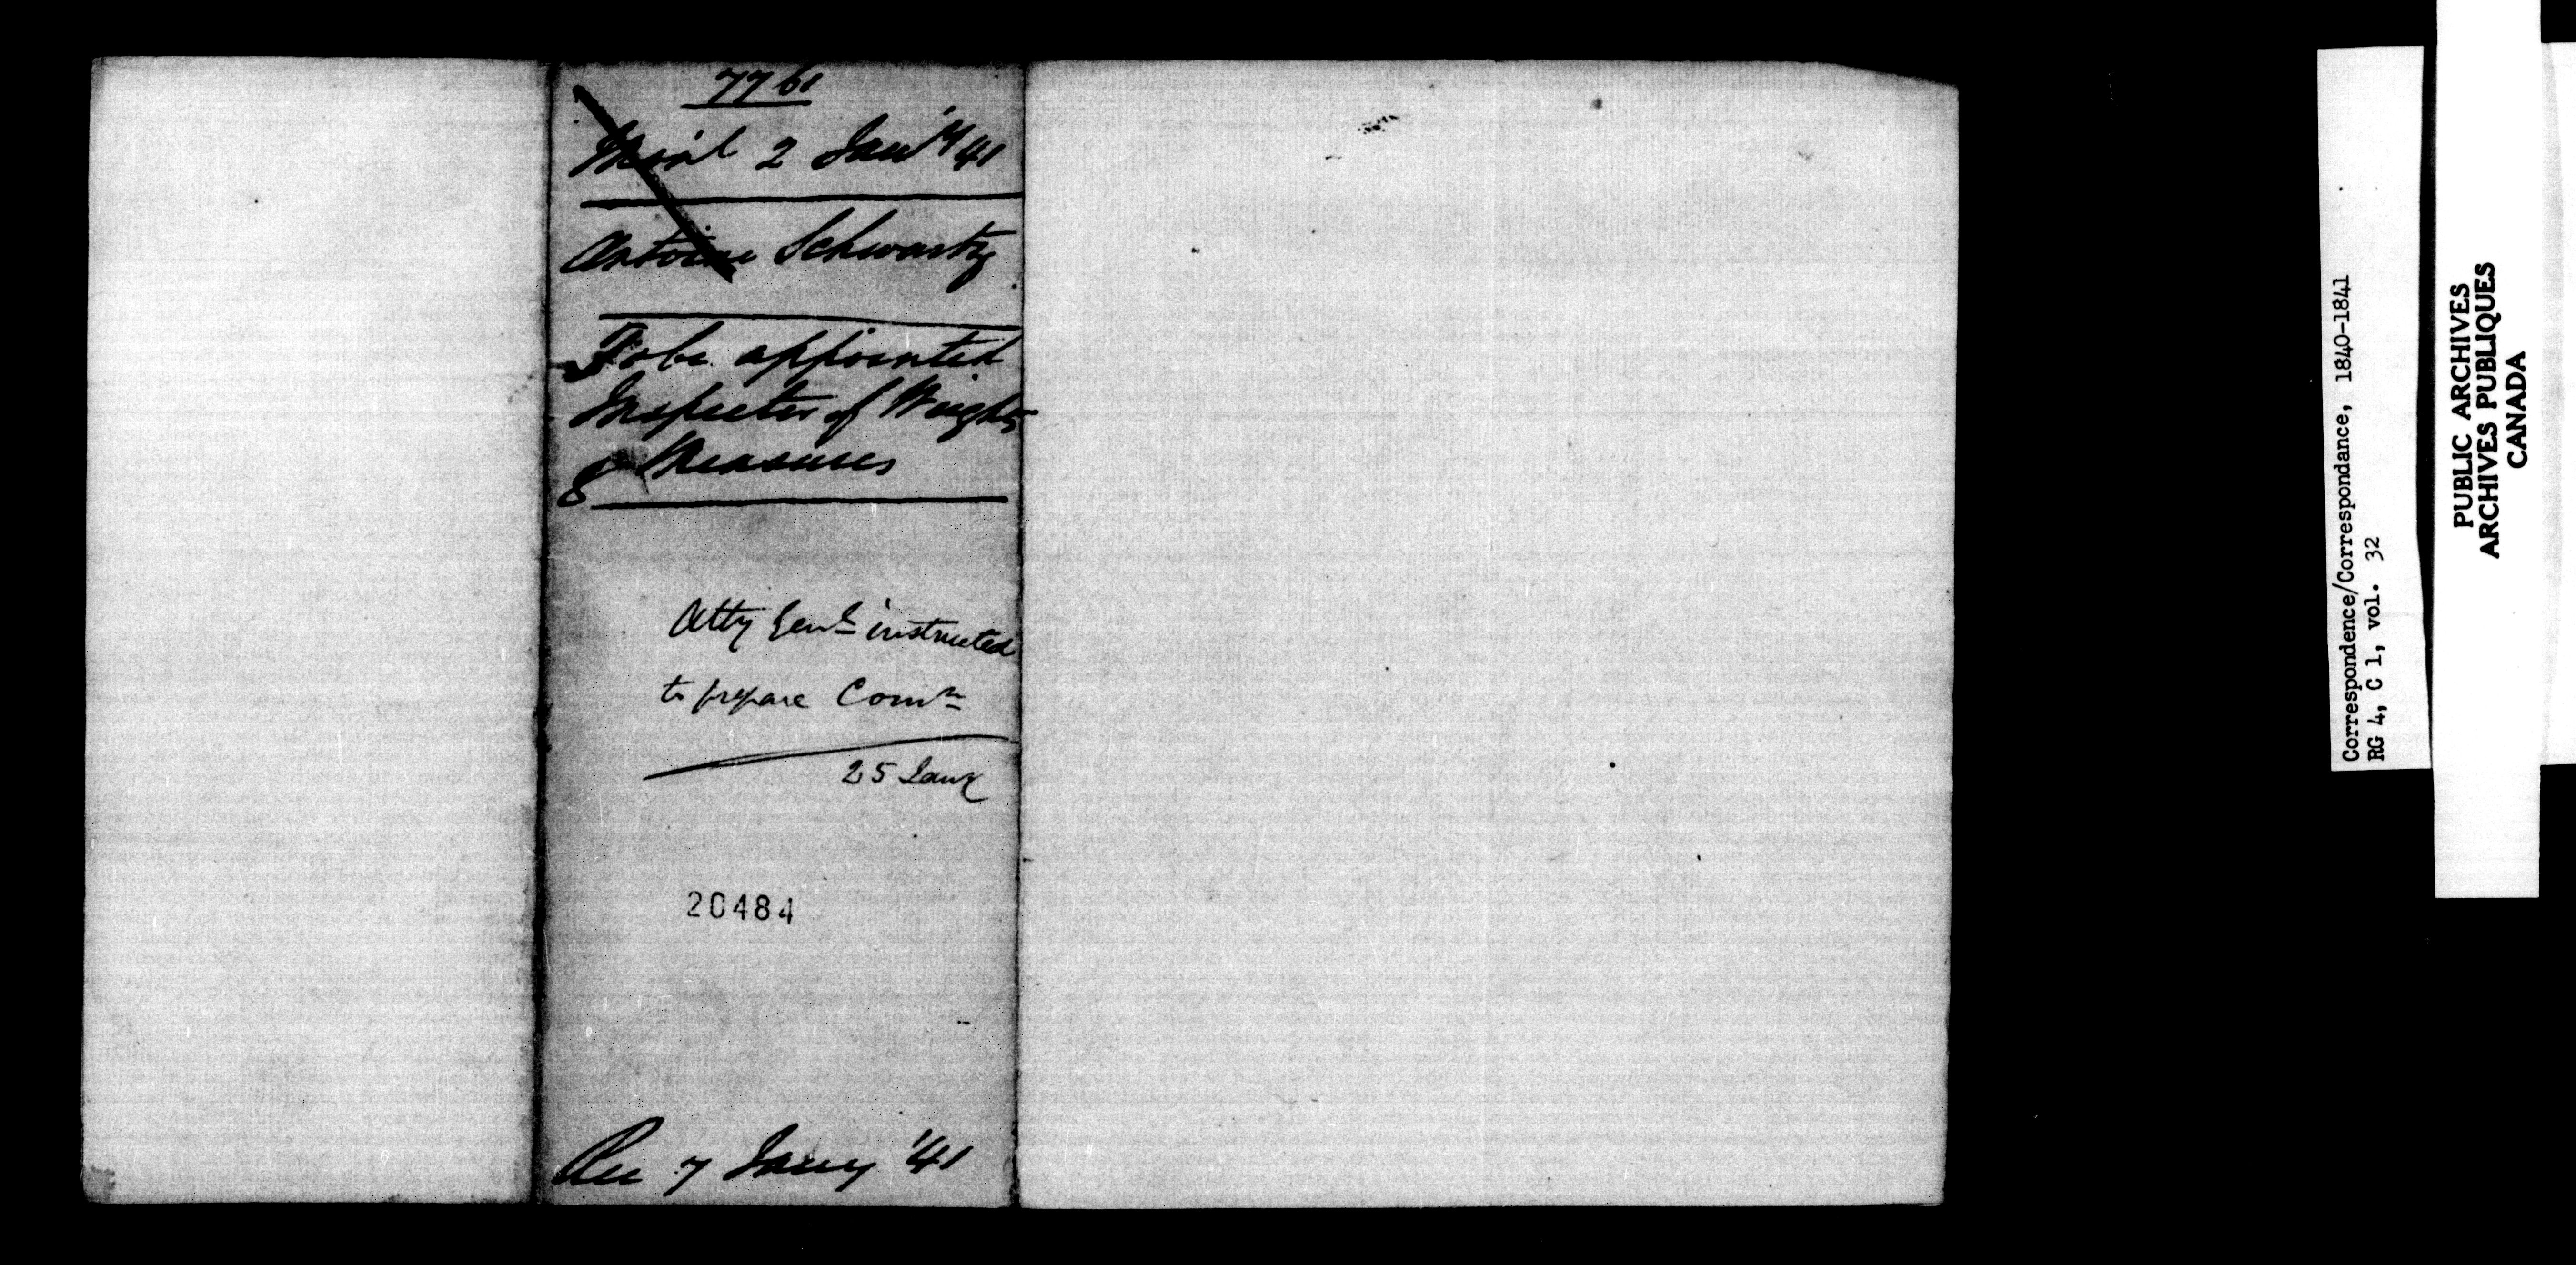 7761
Mon'l 2 Jan'y 41
Antoine Schwartz
To be appointed
Inspector of Weights
& Measures
Atty Genl instructed
to prepare Comn
25 Jany
20484
Rec 7 Jany '41
Correspondence/Correspondance, 1840-1841
RG 4, C 1, vol. 32
PUBLIC ARCHIVES
ARCHIVES PUBLIQUES
CANADA